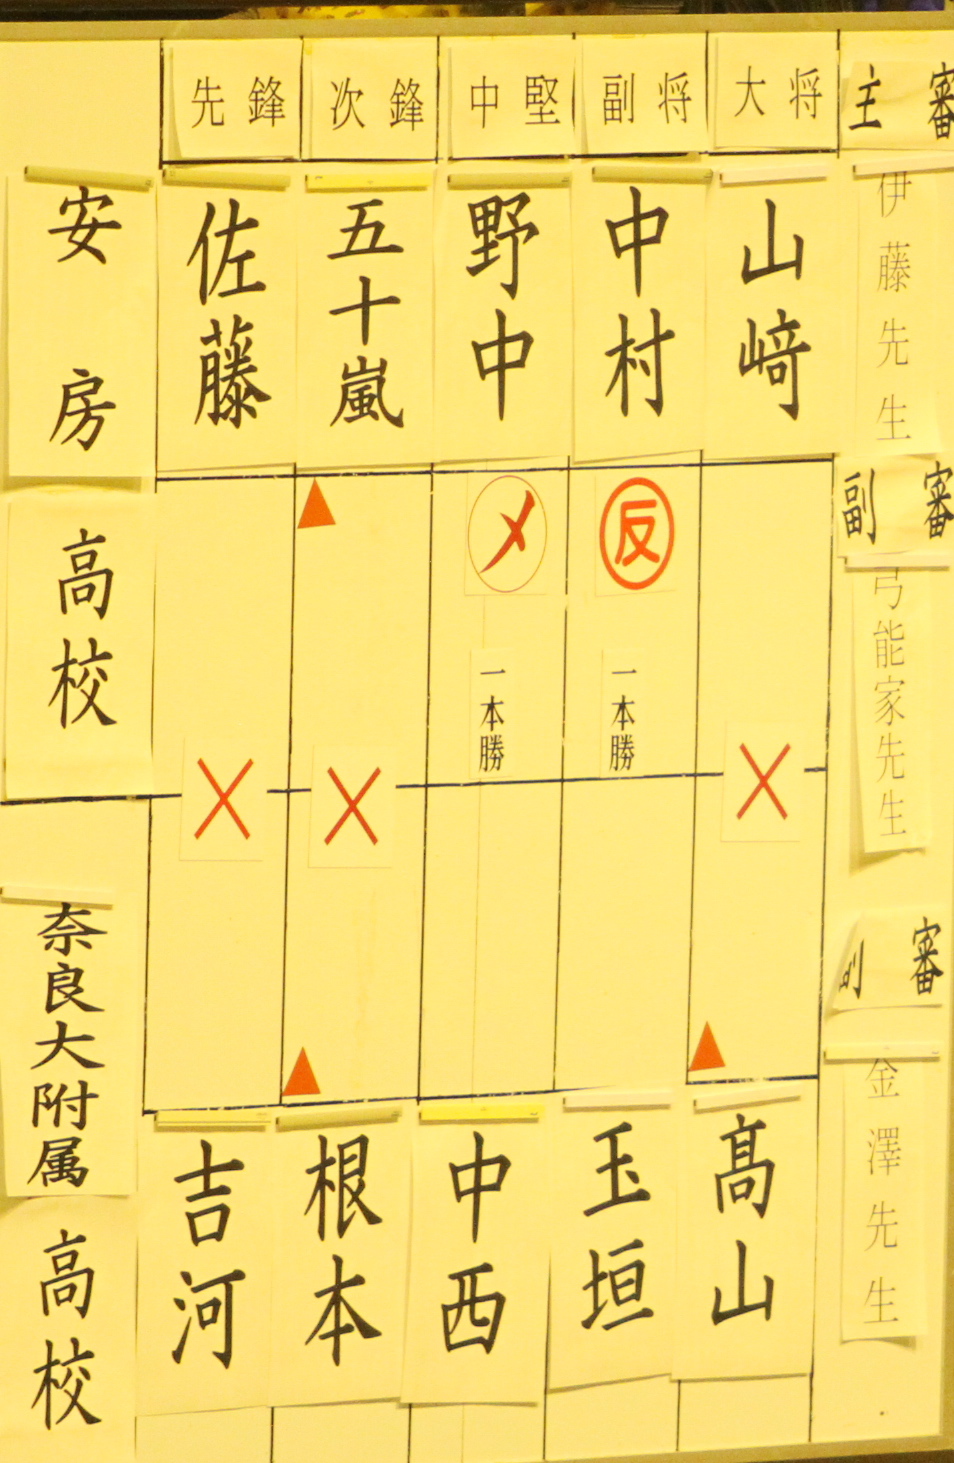 先鋒
次鋒
中堅
副将
大将
主審
安房
高校
佐藤
五十嵐
野中
中村
山﨑
伊藤先生
副審
弓能家先生
メ
反
一本勝
一本勝
副審
金澤先生
奈良大附属
高校
吉河
根本
中西
玉垣
髙山